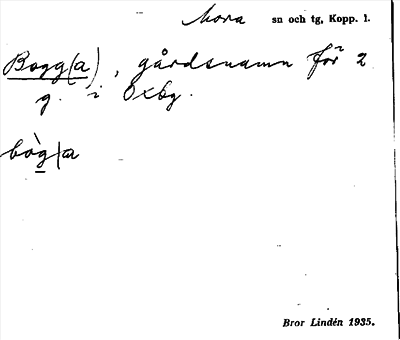 Mora sn och tg, Kopp. l.
Bogg(a), gårdsnamn för 2
g. i Oxby.
bòg/a
Bror Lindén 1935.